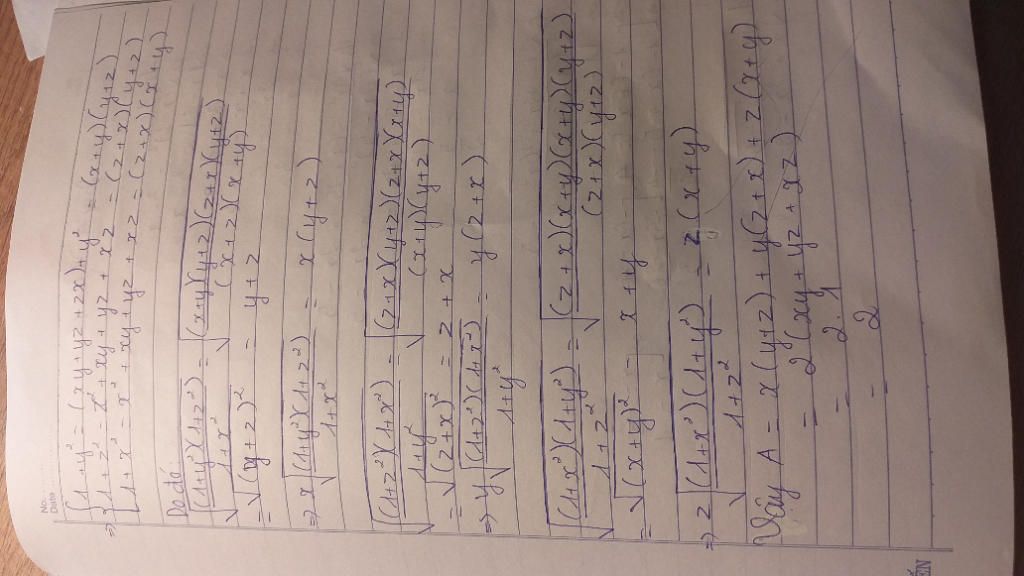 No.
Date
{ 1+y² = (xy+yz+zx)+y² = (x+y)(y+z)
=> { 1+z² = z²+xy+yz+xz = (z+x)(y+z)
{ 1+x² = x²+xy+yz+xz = (z+x)(x+y)
Do đó
√((1+y²)(1+z²)/(1+x²)) = √((x+y)(y+z)(z+x)(y+z)/((x+z)(x+y)))
= √((y+z)²) = y+z
=> x√((1+y²)(1+z²)/(1+x²)) = x(y+z)
√((1+z²)(1+x²)/(1+y²)) = √((z+x)(y+z)(z+x)(x+y)/((x+y)(y+z)))
= √((z+x)²) = z+x
=> y√((1+z²)(1+x²)/(1+y²)) = y(z+x)
√((1+x²)(1+y²)/(1+z²)) = √((z+x)(x+y)(x+y)(y+z)/((z+x)(y+z)))
= √((x+y)²) = x+y
=> z√((1+x²)(1+y²)/(1+z²)) = z(x+y)
Vậy A = x(y+z)+y(z+x)+z(x+y)
= 2(xy+yz+xz)
= 2.1
= 2